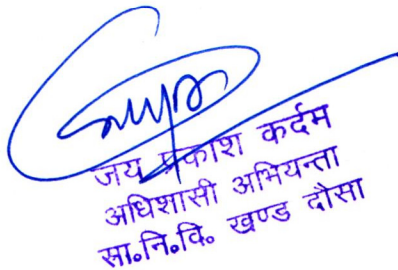 जय प्रकाश कर्दम
अधिशासी अभियन्ता
सा॰नि॰वि॰ खण्ड दौसा